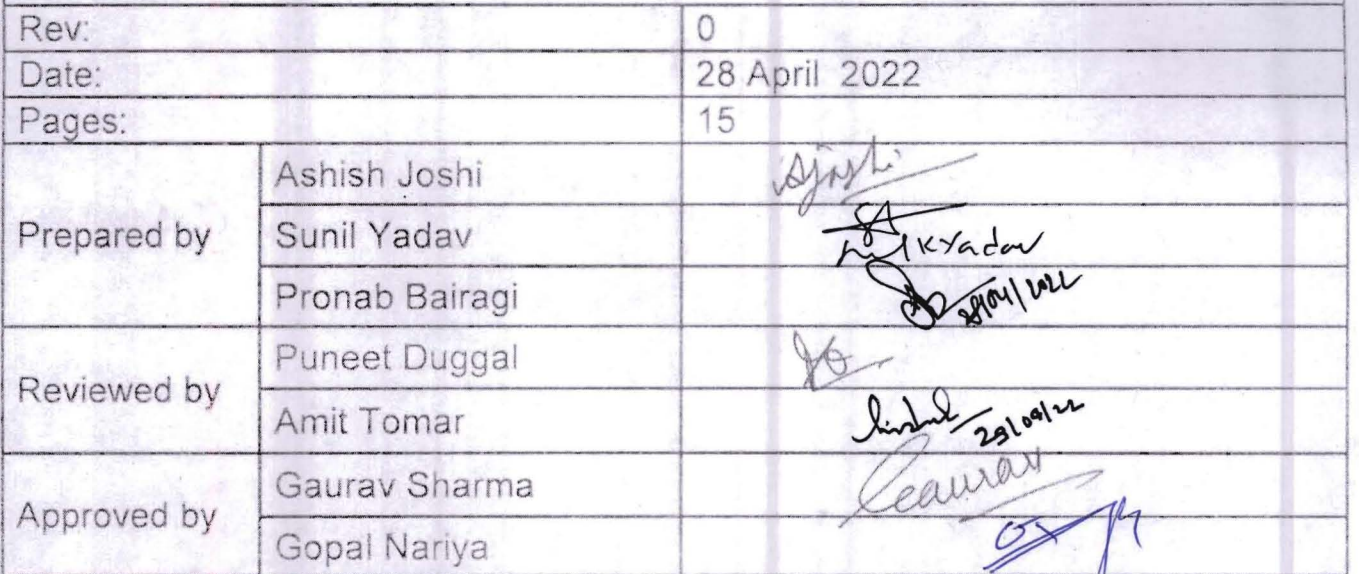 Rev: 0
Date: 28 April 2022
Pages: 15
Prepared by
Ashish Joshi
Sunil Yadav KYadav
Pronab Bairagi 28/04/2022
Reviewed by
Puneet Duggal
Amit Tomar 29/04/22
Approved by
Gaurav Sharma Gaurav
Gopal Nariya